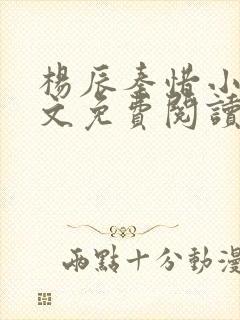 楊辰秦惜小
文免費閱讀
兩點十分動漫